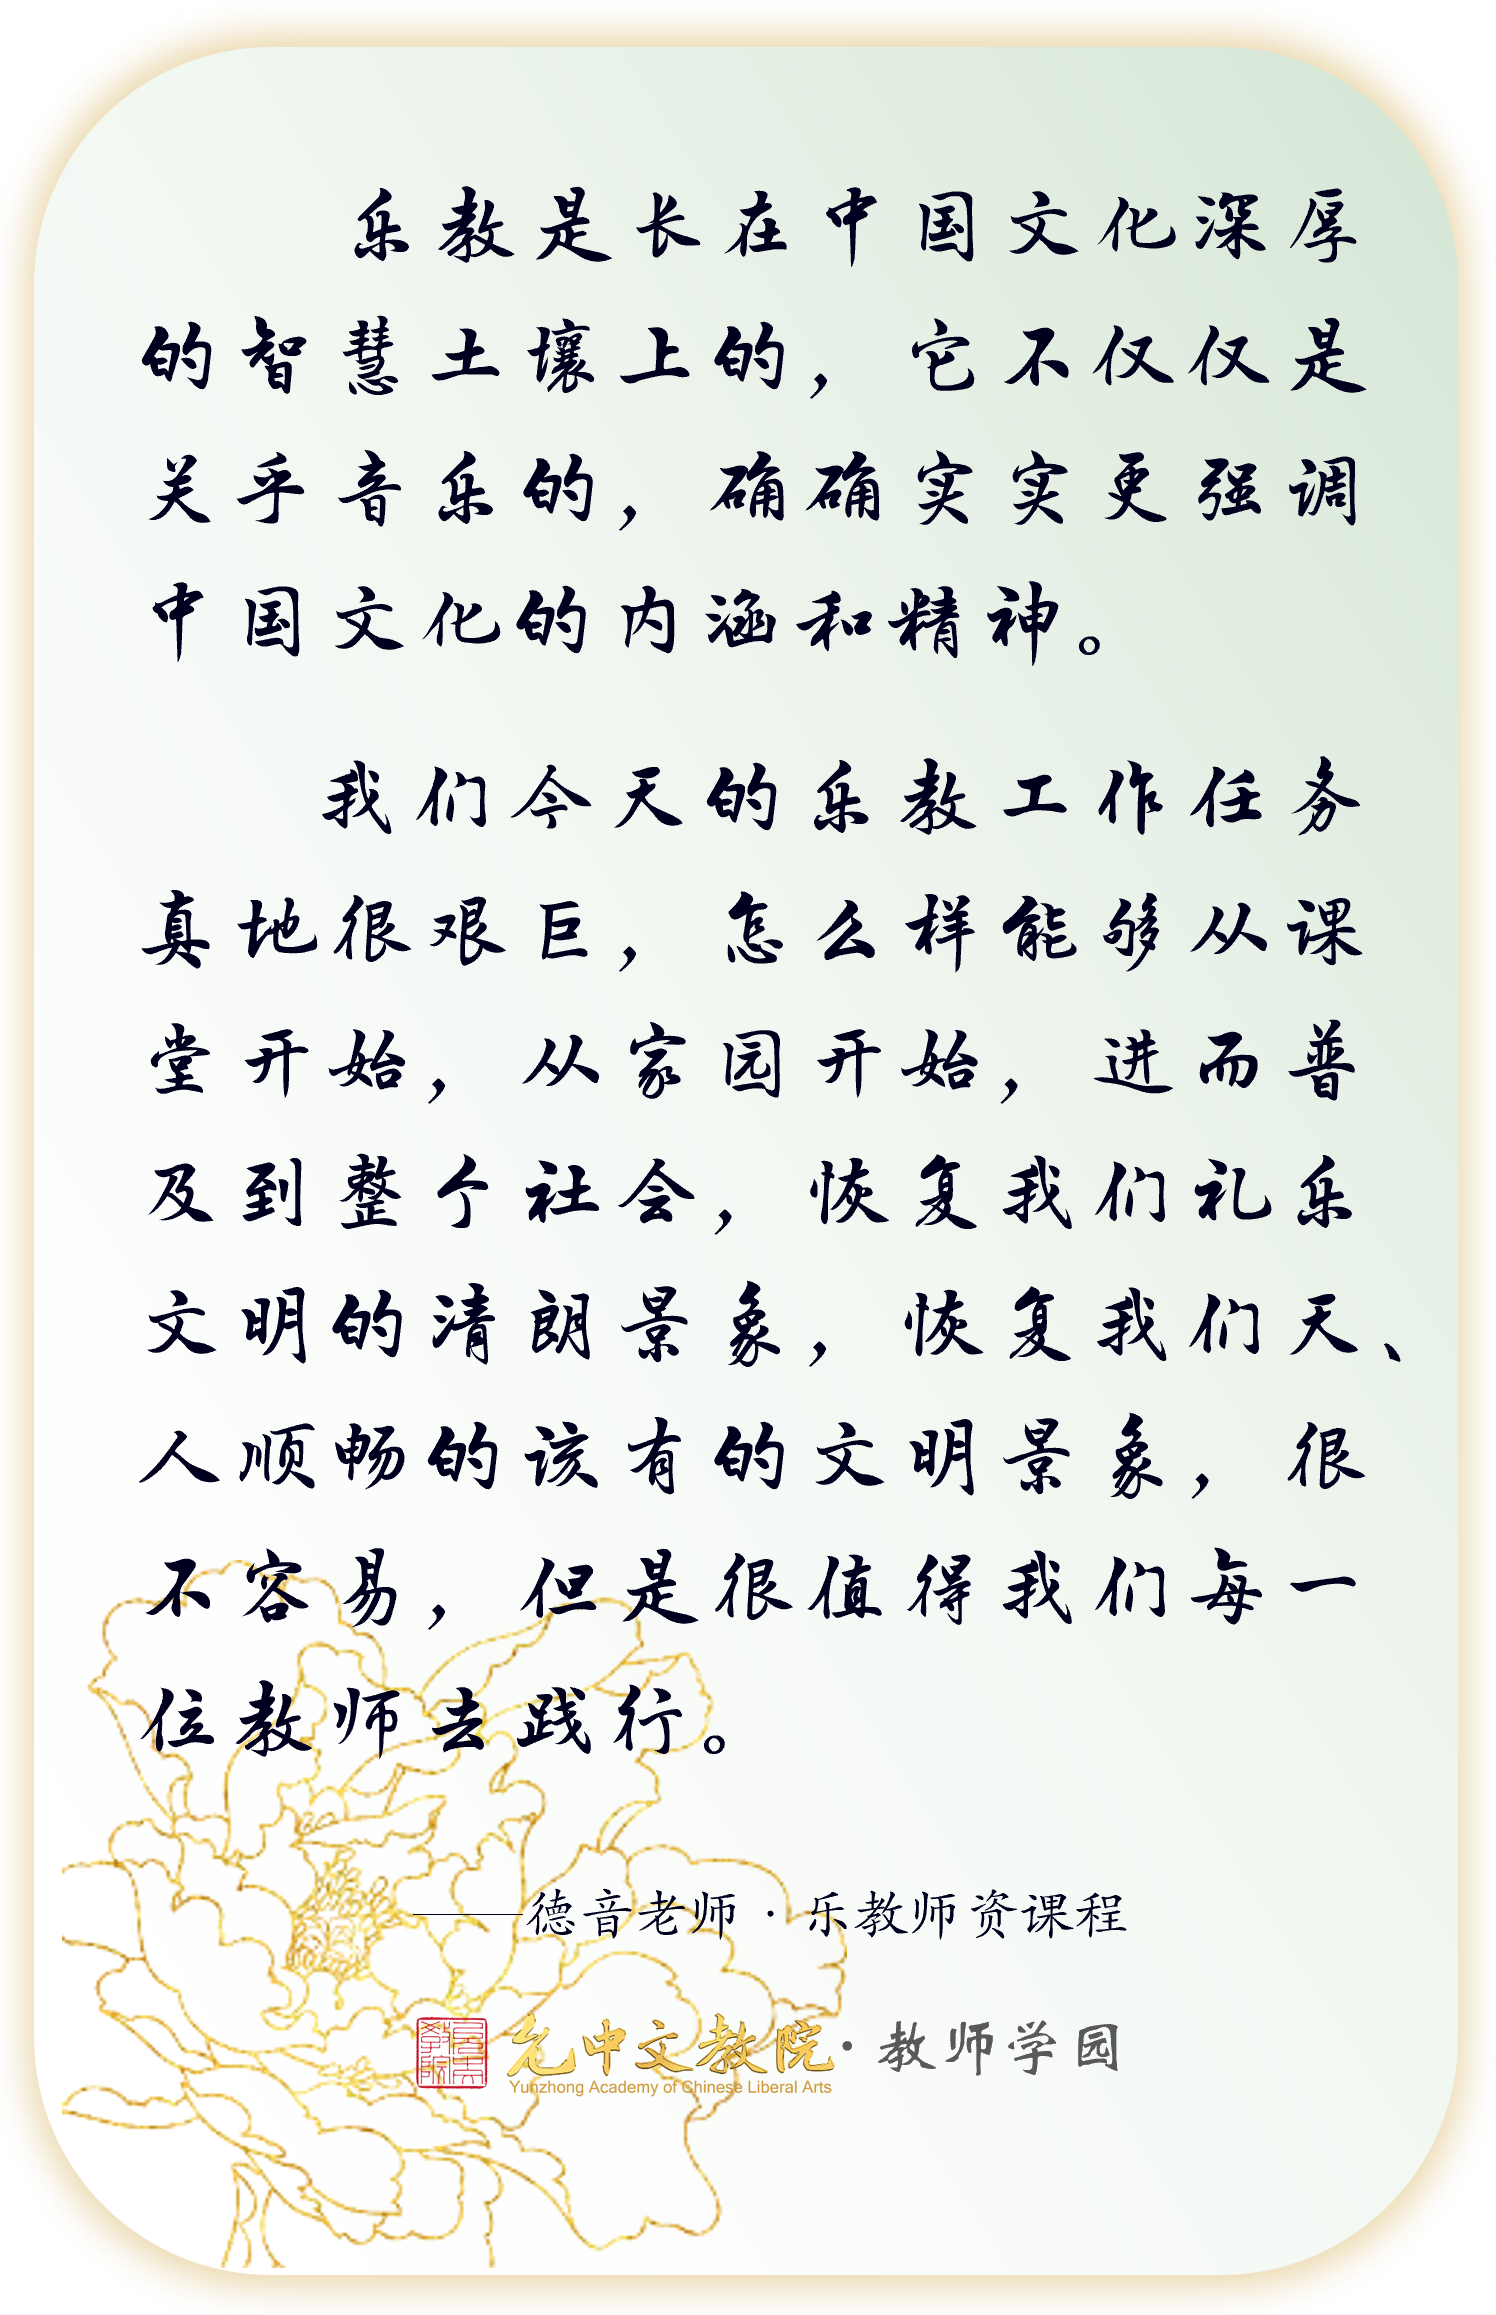 乐教是长在中国文化深厚
的智慧土壤上的，它不仅仅是
关乎音乐的，确确实实更强调
中国文化的内涵和精神。
我们今天的乐教工作任务
真地很艰巨，怎么样能够从课
堂开始，从家园开始，进而普
及到整个社会，恢复我们礼乐
文明的清朗景象，恢复我们天、
人顺畅的该有的文明景象，很
不容易，但是很值得我们每一
位教师去践行。
——德音老师·乐教师资课程
允中文教院·教师学园
Yunzhong Academy of Chinese Liberal Arts